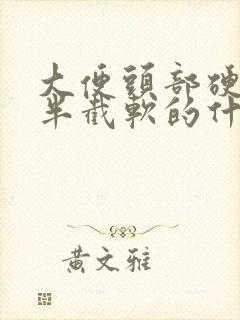 大便頭部硬
半截軟的什
黃文雅